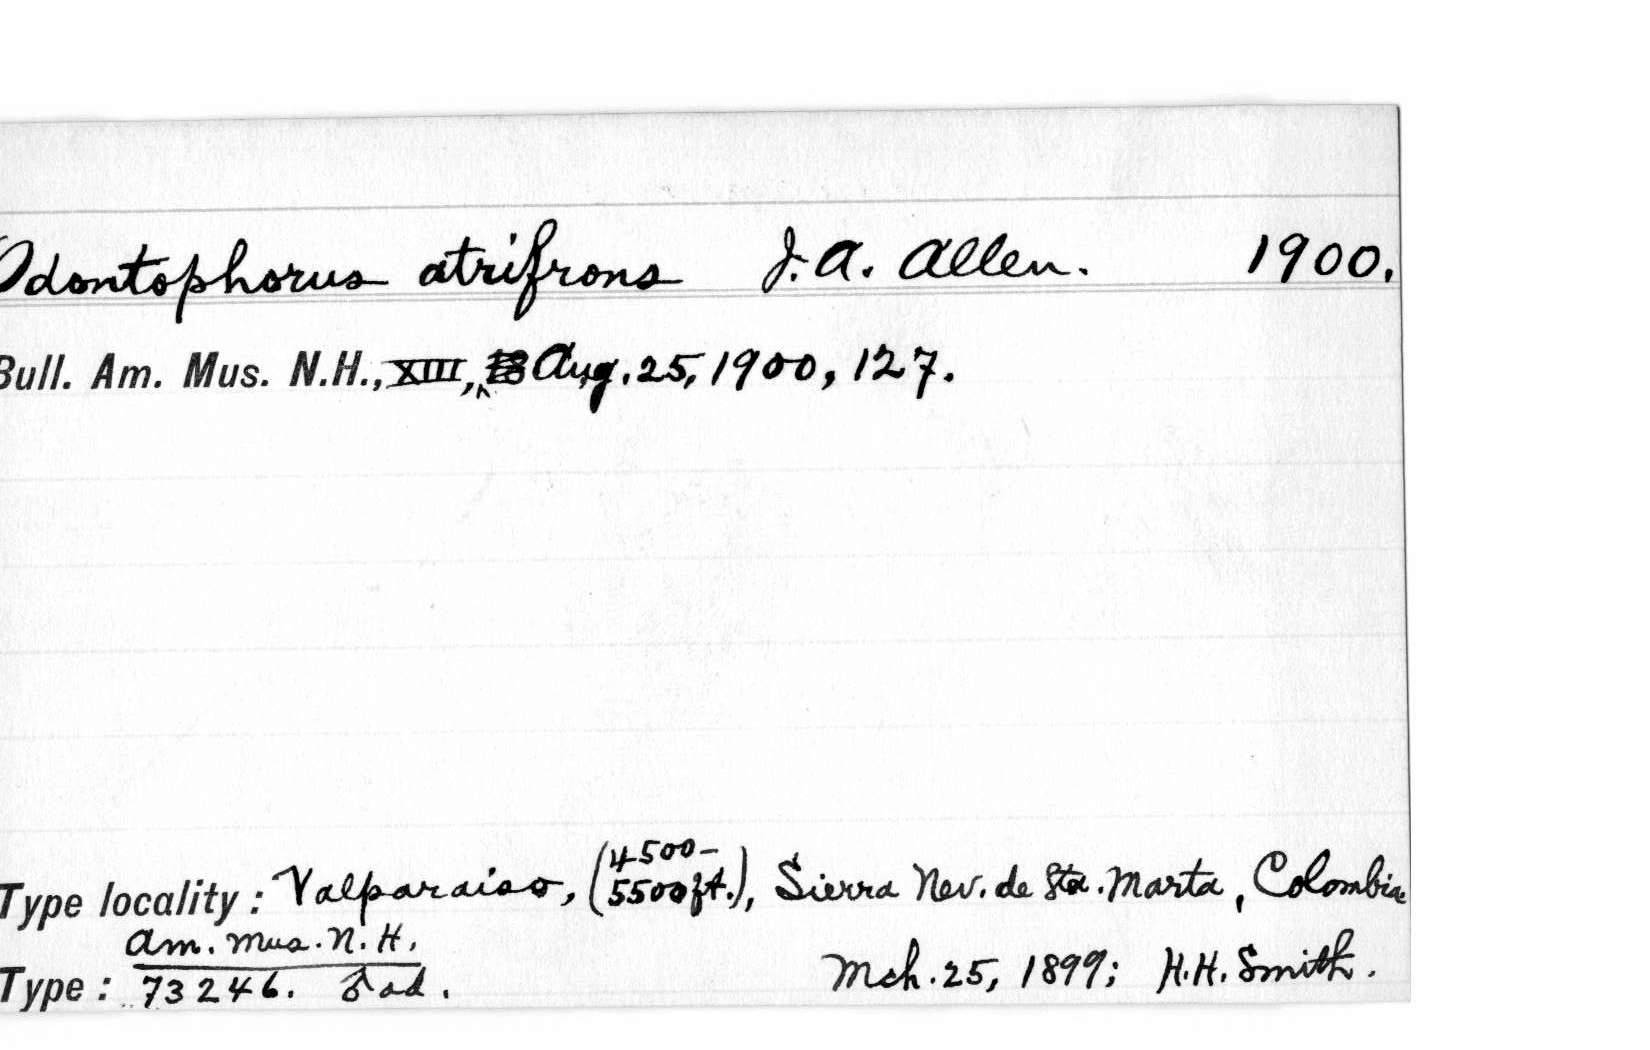 Odontophorus atrifrons J. A. Allen. 1900.
Bull. Am. Mus. N.H., XIII, Aug. 25, 1900, 127.
4500-
Type locality: Valparaiso, (5500ft.), Sierra Nev. de Sta. Marta, Colombia
Am. Mus. N. H.
Type: 73246. ♂ ad. Mch. 25, 1899; H.H. Smith.